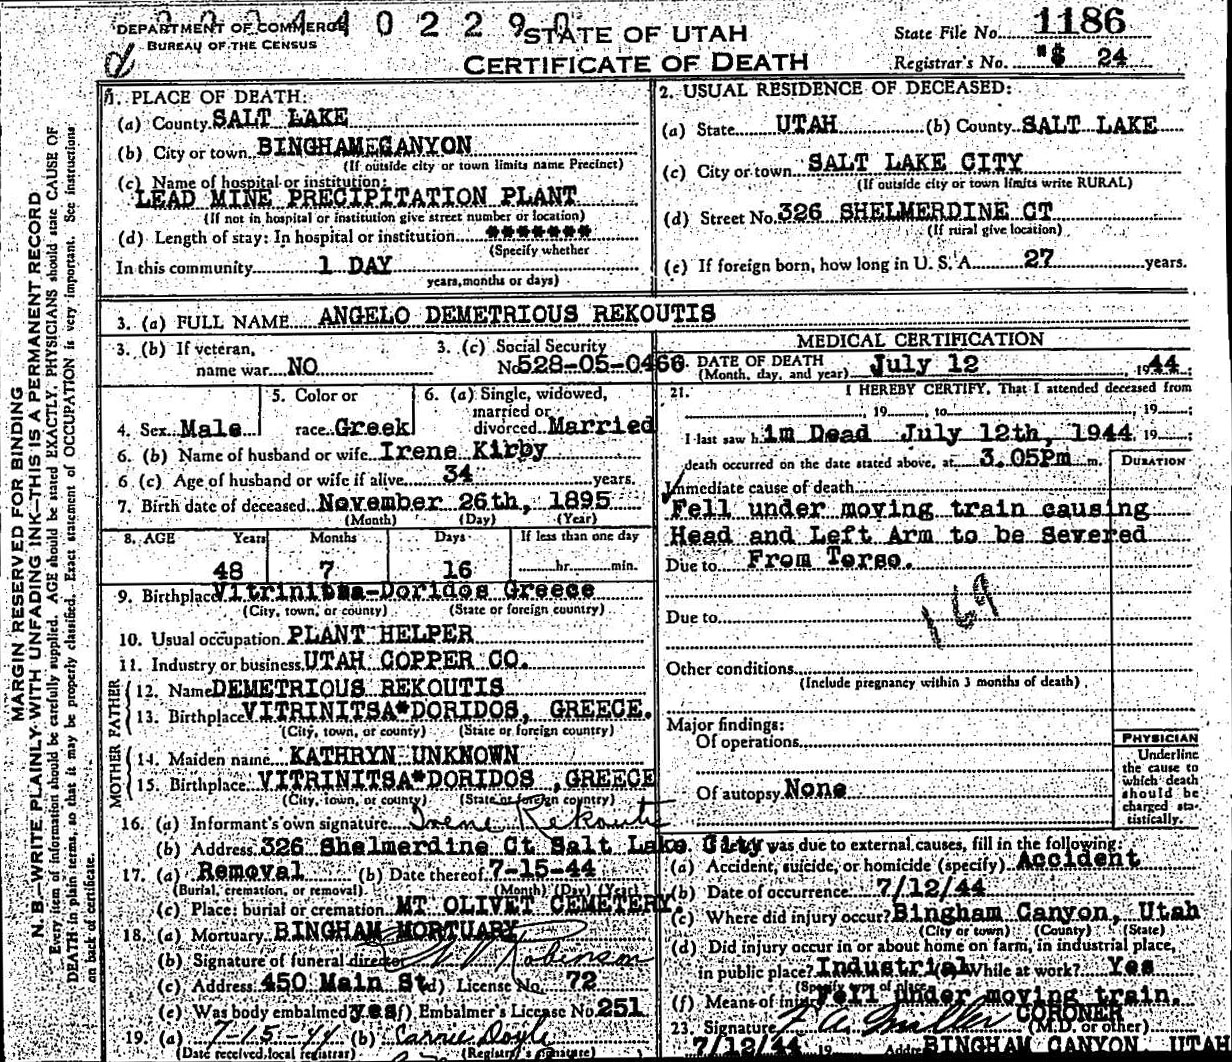 DEPARTMENT OF COMMERCE
BUREAU OF THE CENSUS
4 0 2 2 9 0
STATE OF UTAH
CERTIFICATE OF DEATH
State File No. 1186
Registrar's No. 24
MARGIN RESERVED FOR BINDING
N. B.—WRITE PLAINLY WITH UNFADING INK—THIS IS A PERMANENT RECORD
Every item of information should be carefully supplied. AGE should be stated EXACTLY. PHYSICIANS should state CAUSE OF
DEATH in plain terms, so that it may be properly classified. Exact statement of OCCUPATION is very important. See instructions
on back of certificate.
1. PLACE OF DEATH:
(a) County SALT LAKE
(b) City or town BINGHAM CANYON
(If outside city or town limits name Precinct)
(c) Name of hospital or institution:
LEAD MINE PRECIPITATION PLANT
(If not in hospital or institution give street number or location)
(d) Length of stay: In hospital or institution *******
(Specify whether
In this community 1 DAY
years, months or days)
2. USUAL RESIDENCE OF DECEASED:
(a) State UTAH (b) County SALT LAKE
(c) City or town SALT LAKE CITY
(If outside city or town limits write RURAL)
(d) Street No. 326 SHELMERDINE CT
(If rural give location)
(e) If foreign born, how long in U. S. A. 27 years.
3. (a) FULL NAME ANGELO DEMETRIOUS REKOUTIS
3. (b) If veteran,
name war NO
3. (c) Social Security
No. 528-05-0466
4. Sex Male
5. Color or
race Greek
6. (a) Single, widowed,
married or
divorced Married
6. (b) Name of husband or wife Irene Kirby
6 (c) Age of husband or wife if alive 34 years.
7. Birth date of deceased November 26th, 1895
(Month) (Day) (Year)
8. AGE Years Months Days If less than one day
48 7 16 hr. min.
9. Birthplace Vitrinitsa-Doridos Greece
(City, town, or county) (State or foreign country)
10. Usual occupation PLANT HELPER
11. Industry or business UTAH COPPER CO.
FATHER
12. Name DEMETRIOUS REKOUTIS
13. Birthplace VITRINITSA*DORIDOS, GREECE.
(City, town, or county) (State or foreign country)
MOTHER
14. Maiden name KATHRYN UNKNOWN
15. Birthplace VITRINITSA*DORIDOS ,GREECE
(City, town, or county) (State or foreign country)
16. (a) Informant's own signature Irene Rekoutis
(b) Address 326 Shelmerdine Ct Salt Lake City
17. (a) Removal (b) Date thereof 7-15-44
(Burial, cremation, or removal) (Month) (Day) (Year)
(c) Place: burial or cremation MT OLIVET CEMETERY.
18. (a) Mortuary BINGHAM MORTUARY
(b) Signature of funeral director Robinson
(c) Address 450 Main St (d) License No. 72
(e) Was body embalmed yes (f) Embalmer's License No. 251
19. (a) 7-15-44 (b) Carrie Doyle
(Date received local registrar) (Registrar's signature)
MEDICAL CERTIFICATION
DATE OF DEATH July 12, 1944
(Month, day, and year)
21. I HEREBY CERTIFY, That I attended deceased from
, 19 , to , 19 ;
I last saw him Dead July 12th, 1944 19 ;
death occurred on the date stated above, at 3.05Pm m.
DURATION
Immediate cause of death
Fell under moving train causing
Head and Left Arm to be Severed
Due to From Torso.
169
Due to
Other conditions
(Include pregnancy within 3 months of death)
Major findings:
Of operations
Of autopsy None
PHYSICIAN
Underline
the cause to
which death
should be
charged sta-
tistically.
was due to external causes, fill in the following:
(a) Accident, suicide, or homicide (specify) Accident
(b) Date of occurrence 7/12/44
(c) Where did injury occur? Bingham Canyon, Utah
(City or town) (County) (State)
(d) Did injury occur in or about home on farm, in industrial place,
in public place? Industrial While at work? Yes
(Specify type of place)
(f) Means of injury Fell under moving train.
CORONER
23. Signature F. A. Miller (M.D. or other)
7/12/44 19 Address BINGHAM CANYON, UTAH